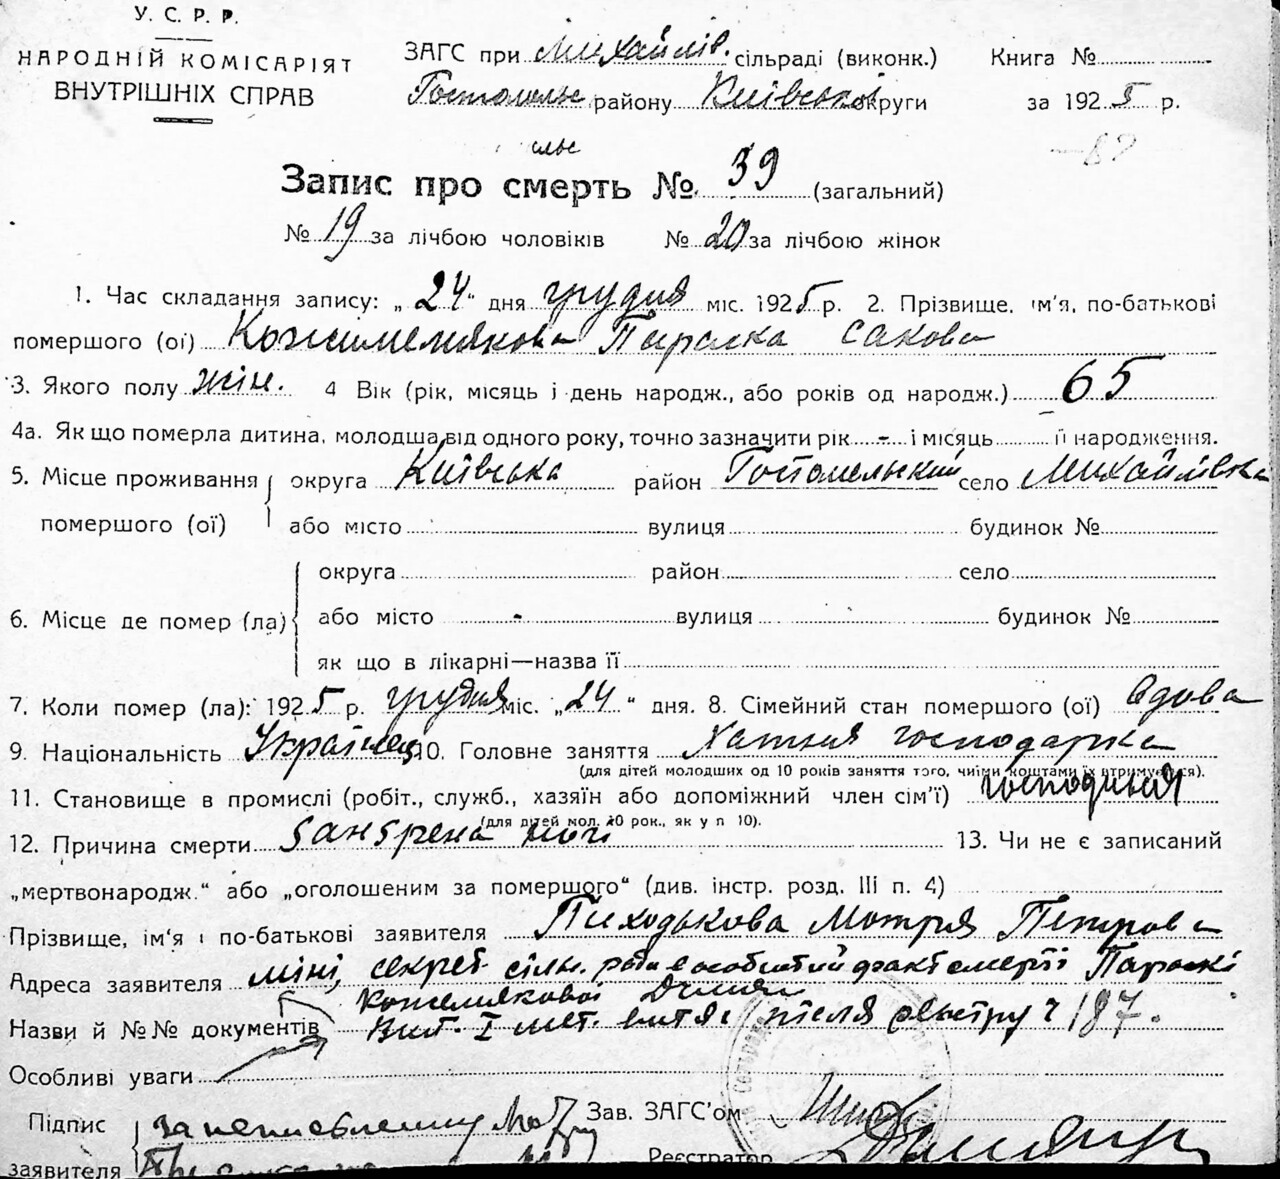 У. С. Р. Р.
НАРОДНІЙ КОМІСАРІЯТ
ВНУТРІШНІХ СПРАВ
ЗАГС при Михайлів. сільраді (виконк.) Книга №
Гостомельс району Київської округи за 1925 р.
Запис про смерть № 39 (загальний)
№ 19 за лічбою чоловіків № 20 за лічбою жінок
1. Час складання запису: „24“ дня грудня міс. 1925 р. 2. Прізвище, ім'я, по-батькові
помершого (ої) Кожимемякова Параска Сакова
3. Якого полу жін. 4 Вік (рік, місяць і день народж., або років од народж.) 65
4а. Як що померла дитина, молодша від одного року, точно зазначити рік - і місяць її народження.
5. Місце проживання помершого (ої) округа Київська район Гостомельский село Михайлівка
або місто вулиця будинок №
6. Місце де помер (ла) округа район село
або місто - вулиця будинок №
як що в лікарні—назва її
7. Коли помер (ла): 1925 р. грудня міс. „24“ дня. 8. Сімейний стан помершого (ої) вдова
9. Національність Українец 10. Головне заняття Хатня господарка
(для дітей молодших од 10 років заняття того, чиїми коштами їх втримується).
11. Становище в промислі (робіт., служб., хазяїн або допоміжний член сім'ї)
(для дітей мол. 10 рок., як у п 10).
12. Причина смерти 13. Чи не є записаний
„мертвонародж.“ або „оголошеним за помершого“ (див. інстр. розд. III п. 4)
Прізвище, ім'я і по-батькові заявителя Мотря Петрова
Адреса заявителя секрет. сільн. ради факт смерті Параскі
Кожемякової
Назви й №№ документів після реєстру ч 187.
Особливі уваги
Підпис заявителя за неписьменну
Зав. ЗАГС'ом
Реєстратор